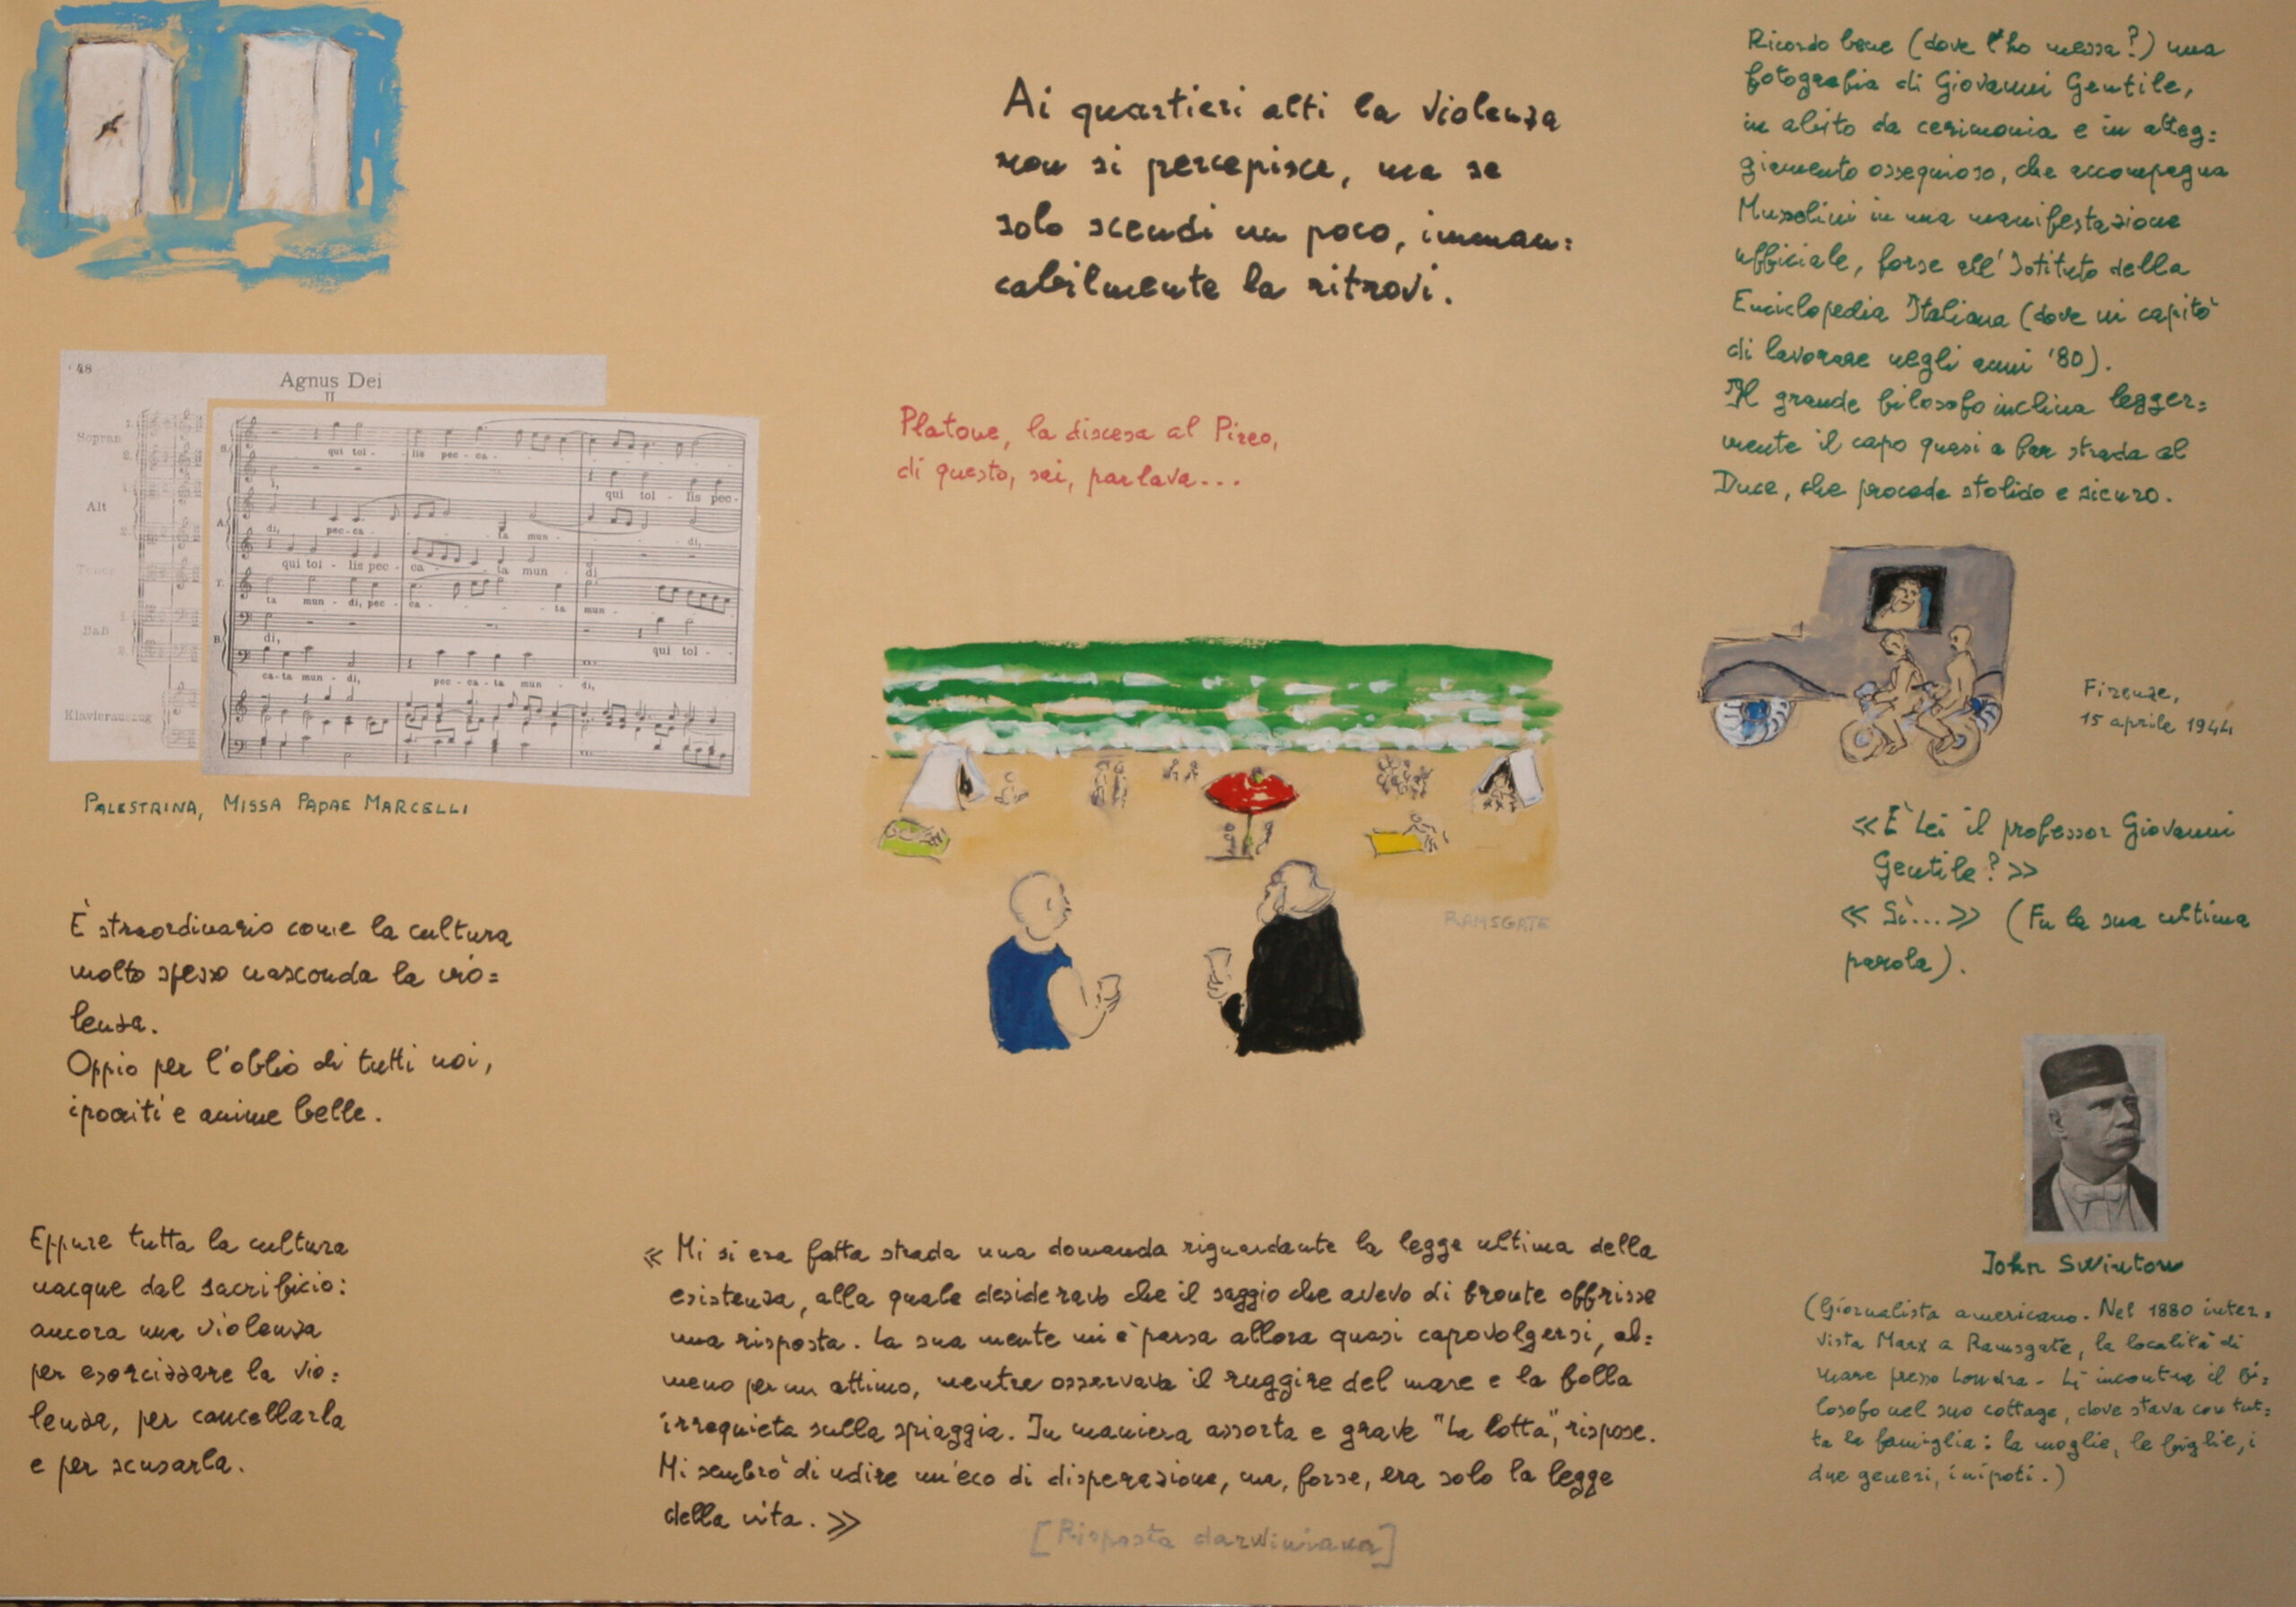 Ai quartieri alti la violenza
non si percepisce, ma se
solo scendi un poco, imman=
cabilmente la ritrovi.
Platone, la discesa al Pireo,
di questo, sai, parlava...
48
Agnus Dei
II
Sopran
Alt
Tenor
Baß
Klavierauszug
S.
qui tol - lis pec - ca -
i,
qui tol - lis pec -
A.
di, pec - ca - ta mun - di,
qui tol - lis pec - ca - ta mun - di
T.
ta mun - di, pec - ca - ta mun -
B.
di, qui tol -
ca - ta mun - di, pec - ca - ta mun - di,
PALESTRINA, MISSA PAPAE MARCELLI
È straordinario come la cultura
molto spesso nasconda la vio=
lenza.
Oppio per l'oblio di tutti noi,
ipocriti e anime belle.
Eppure tutta la cultura
nacque dal sacrificio:
ancora una violenza
per esorcizzare la vio=
lenza, per cancellarla
e per scusarla.
RAMSGATE
« Mi si era fatta strada una domanda riguardante la legge ultima della
esistenza, alla quale desideravo che il saggio che avevo di fronte offrisse
una risposta. La sua mente mi è parsa allora quasi capovolgersi, al=
meno per un attimo, mentre osservava il ruggire del mare e la folla
irrequieta sulla spiaggia. In maniera assorta e grave "La lotta", rispose.
Mi sembrò di udire un'eco di disperazione, ma, forse, era solo la legge
della vita. »
[Risposta darwiniana]
Ricordo bene (dove l'ho messa?) una
fotografia di Giovanni Gentile,
in abito da cerimonia e in atteg=
giamento ossequioso, che accompagna
Mussolini in una manifestazione
ufficiale, forse all'Istituto della
Enciclopedia Italiana (dove mi capitò
di lavorare negli anni '80).
Il grande filosofo inclina legger=
mente il capo quasi a far strada al
Duce, che procede stolido e sicuro.
Firenze,
15 aprile 1944
«È Lei il professor Giovanni
Gentile?»
« Sì...» (Fu la sua ultima
parola).
John Swinton
(Giornalista americano. Nel 1880 inter=
vista Marx a Ramsgate, la località di
mare presso Londra. Lì incontra il fi=
losofo nel suo cottage, dove stava con tut=
ta la famiglia: la moglie, le figlie, i
due generi, i nipoti.)